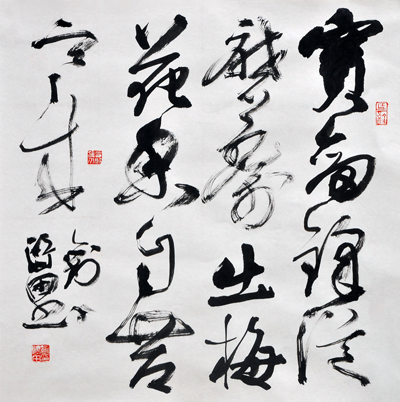 寶劍鋒從
磨礪出梅
花香自苦
寒来